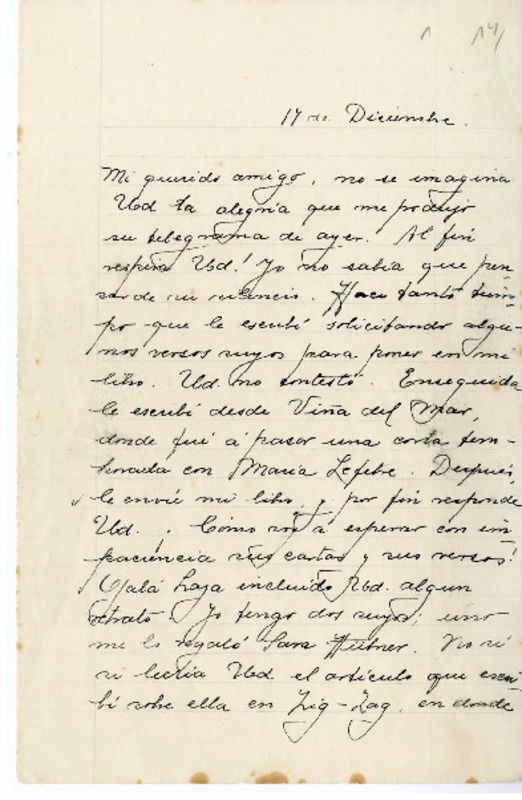 1 14/
17 de Diciembre.
Mi querido amigo, no se imagina
Ud la alegría que me produjo
su telegrama de ayer. Al fin
respira Ud.! Yo no sabía que pen-
sar de su silencio. Hace tanto tiem-
po que le escribí solicitando algu-
nos versos suyos para poner en mi
libro. Ud. no contestó. Enseguida
le escribí desde Viña del Mar,
donde fuí á pasar una corta tem-
porada con María Lefebre. Después,
le envié mi libro, y por fin responde
Ud.. Cómo voy á esperar con im-
paciencia sus cartas y sus versos!
Ojalá haya incluído Ud. algun
retrato! Yo tengo dos suyos; uno
me lo regaló Sara Hübner. No sé
si leería Ud el artículo que escri-
bí sobre ella en Zig-Zag, en donde